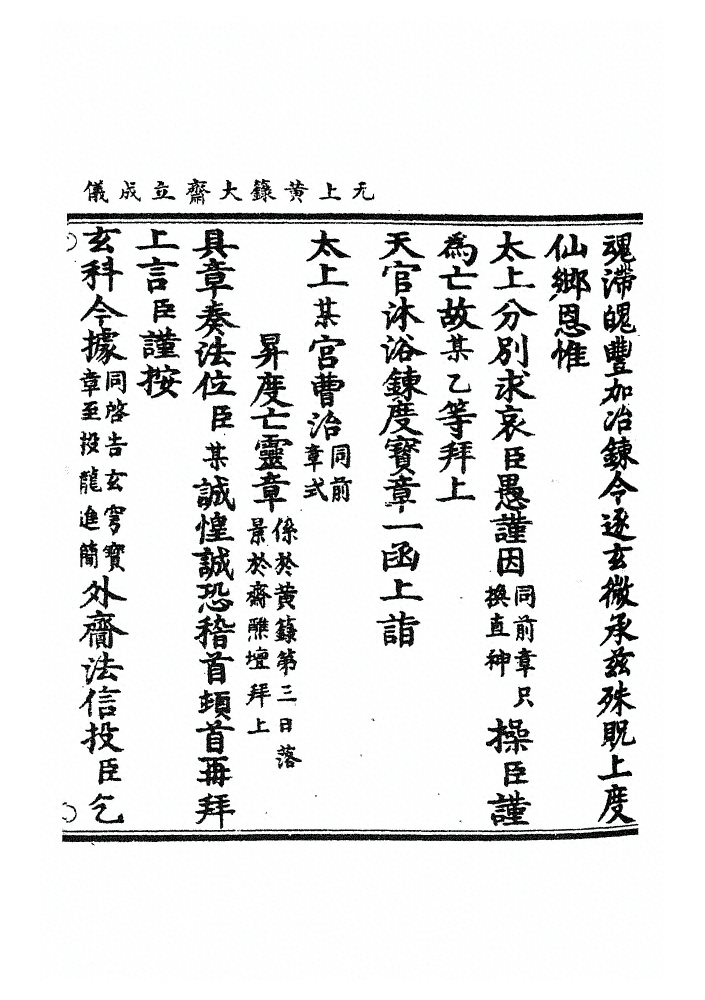 无上黄籙大齋立成儀
魂滯魄豐加冶鍊今逐玄微承兹殊貺上度
仙鄉恩惟
太上分别求哀臣愚謹因同前章只換直神操臣謹
為亡故某乙等拜上
天官沐浴鍊度寶章一函上詣
太上某宫曹治同前章式
昇度亡靈章係於黄籙第三日落景於齋醮壇拜上
具章奏法位臣某誠惶誠恐稽首頓首再拜
上言臣謹按
玄科今據同啓告玄穹寶章至投龍進簡外齎法信投臣乞